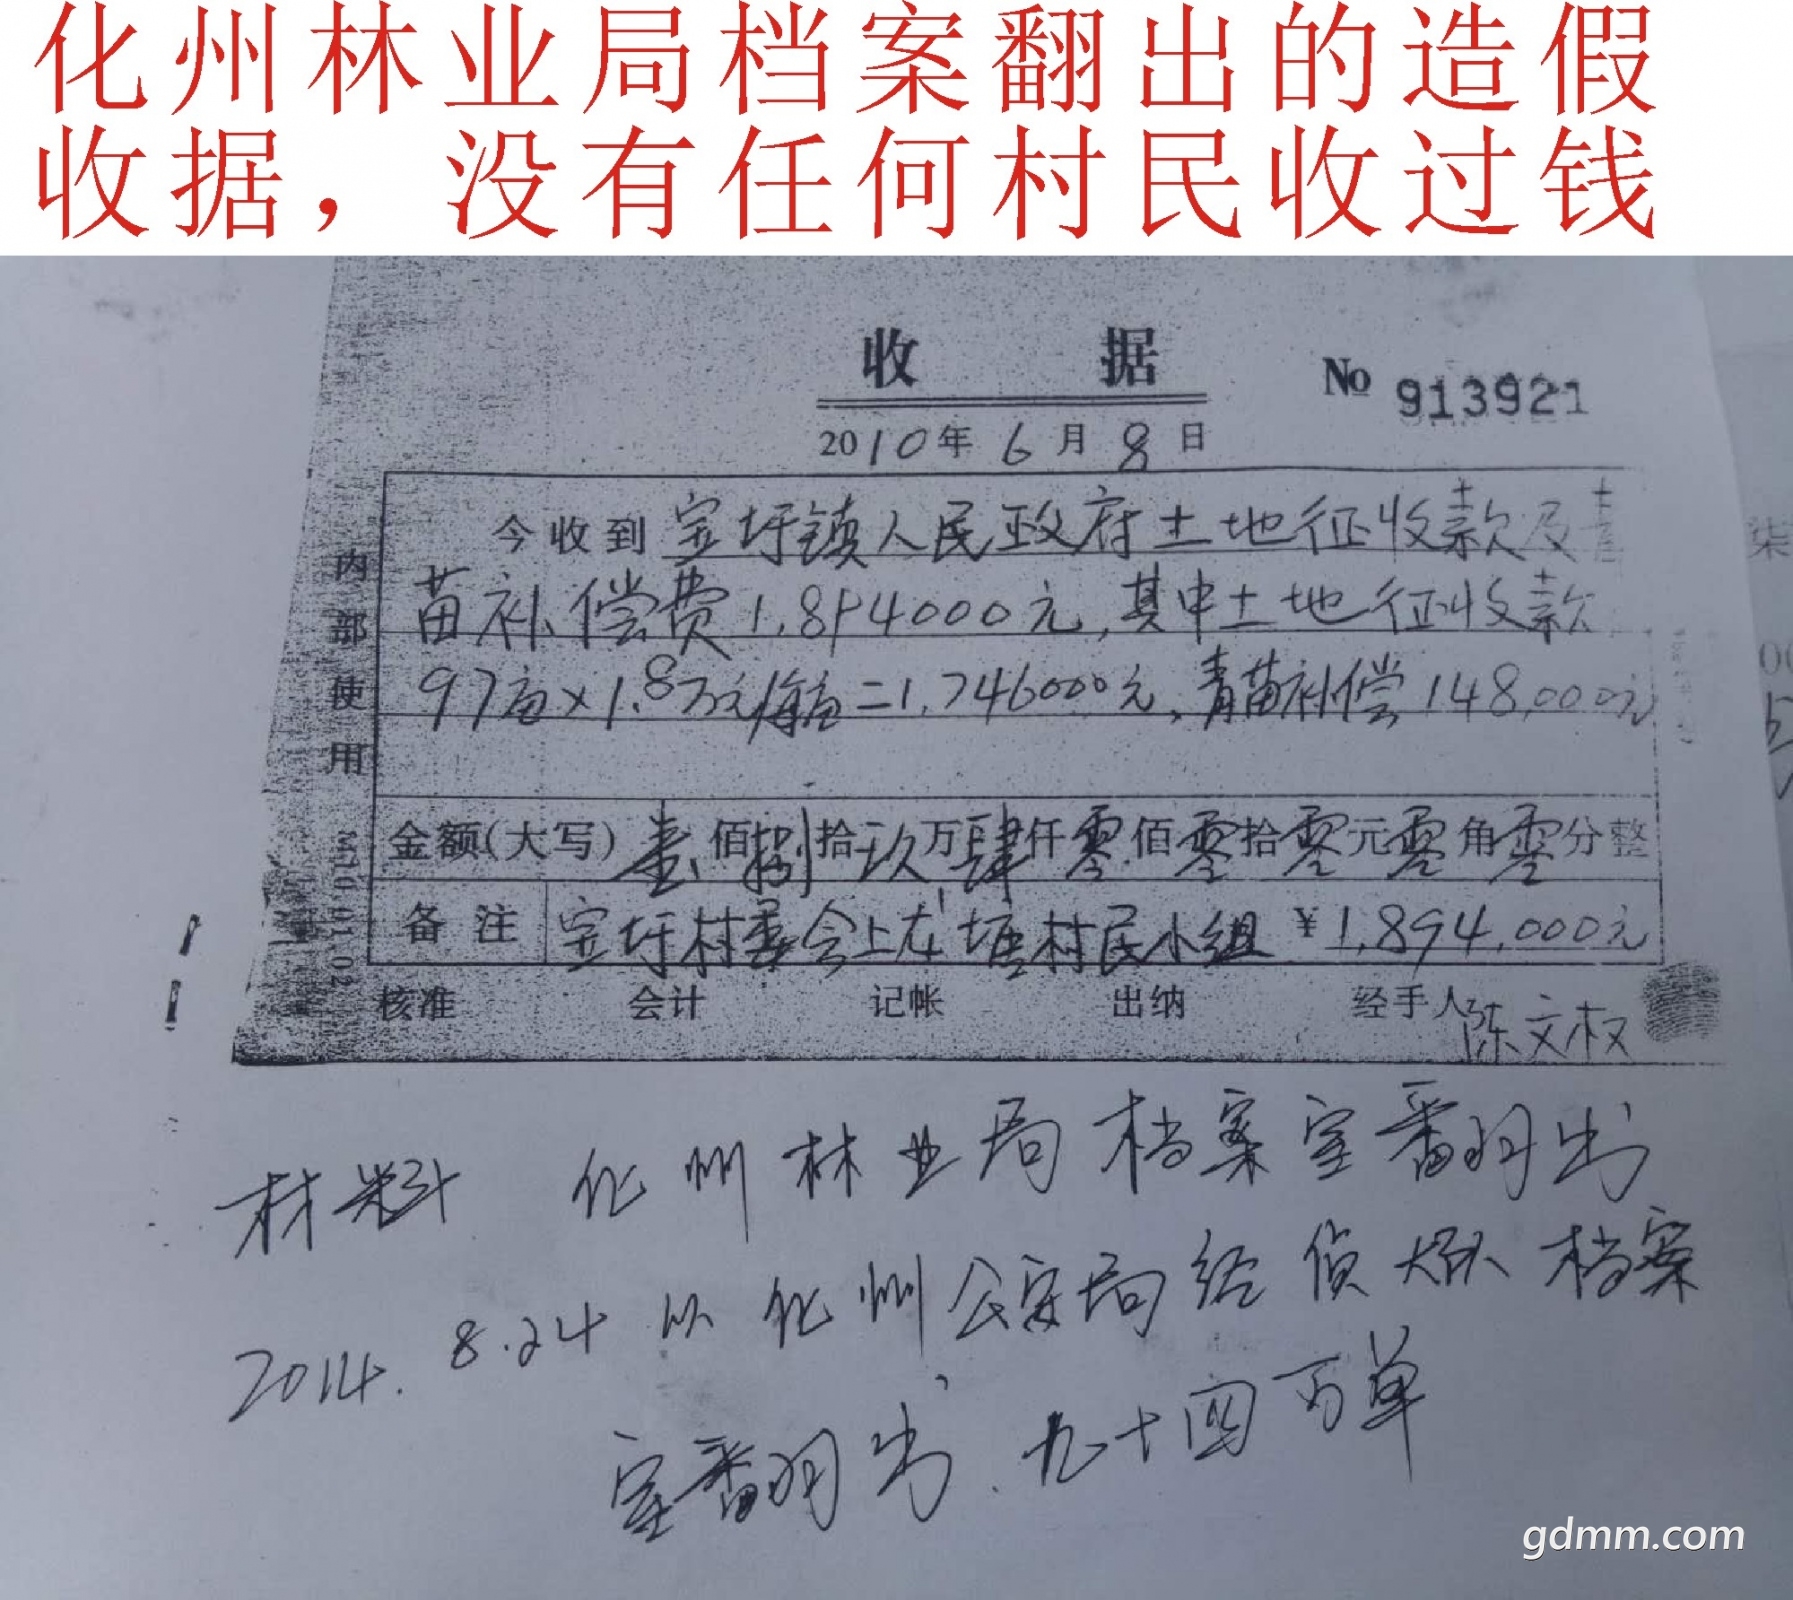 化州林业局档案翻出的造假
收据，没有任何村民收过钱
收 据 No 913921
2010年 6 月 8 日
今收到宝圩镇人民政府土地征收款及青
苗补偿费1,894000元,其中土地征收款
97亩×1.8万元/每亩=1,746000元,青苗补偿148,000元
内部使用
金额(大写) 壹佰捌拾玖万肆仟零佰零拾零元零角零分整
备注 宝圩村委会上左塘村民小组 ¥1,894,000元
核准 会计 记帐 出纳 经手人陈文权
材料 化州林业局档案室翻出
2014.8.24从化州公安局经侦大队档案
室翻出、九十四万单
gdmm.com